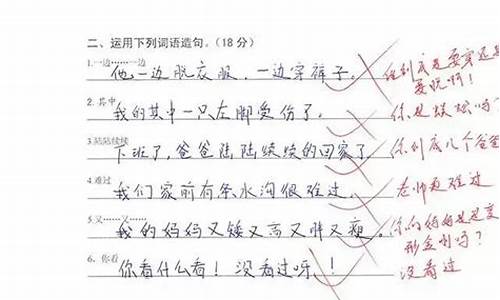 二、运用下列词语造句。(18分)
1.一边……一边
他一边脱衣服,一边穿裤子。
他到底是要穿还是
要脱啊!
2. 其中
我的其中一只左脚受伤了。
你是蜈蚣吗?
3.陆陆续续
下班了,爸爸陆陆续续的回家了。
你到底几个爸爸
4.难过
我们家前有条水沟很难过。
老师更难过
5.又……又……
我的妈妈又矮又高又胖又瘦。
你的妈妈是变
形金刚吗?
6、你看
你看什么看!没看过呀!!
没看过